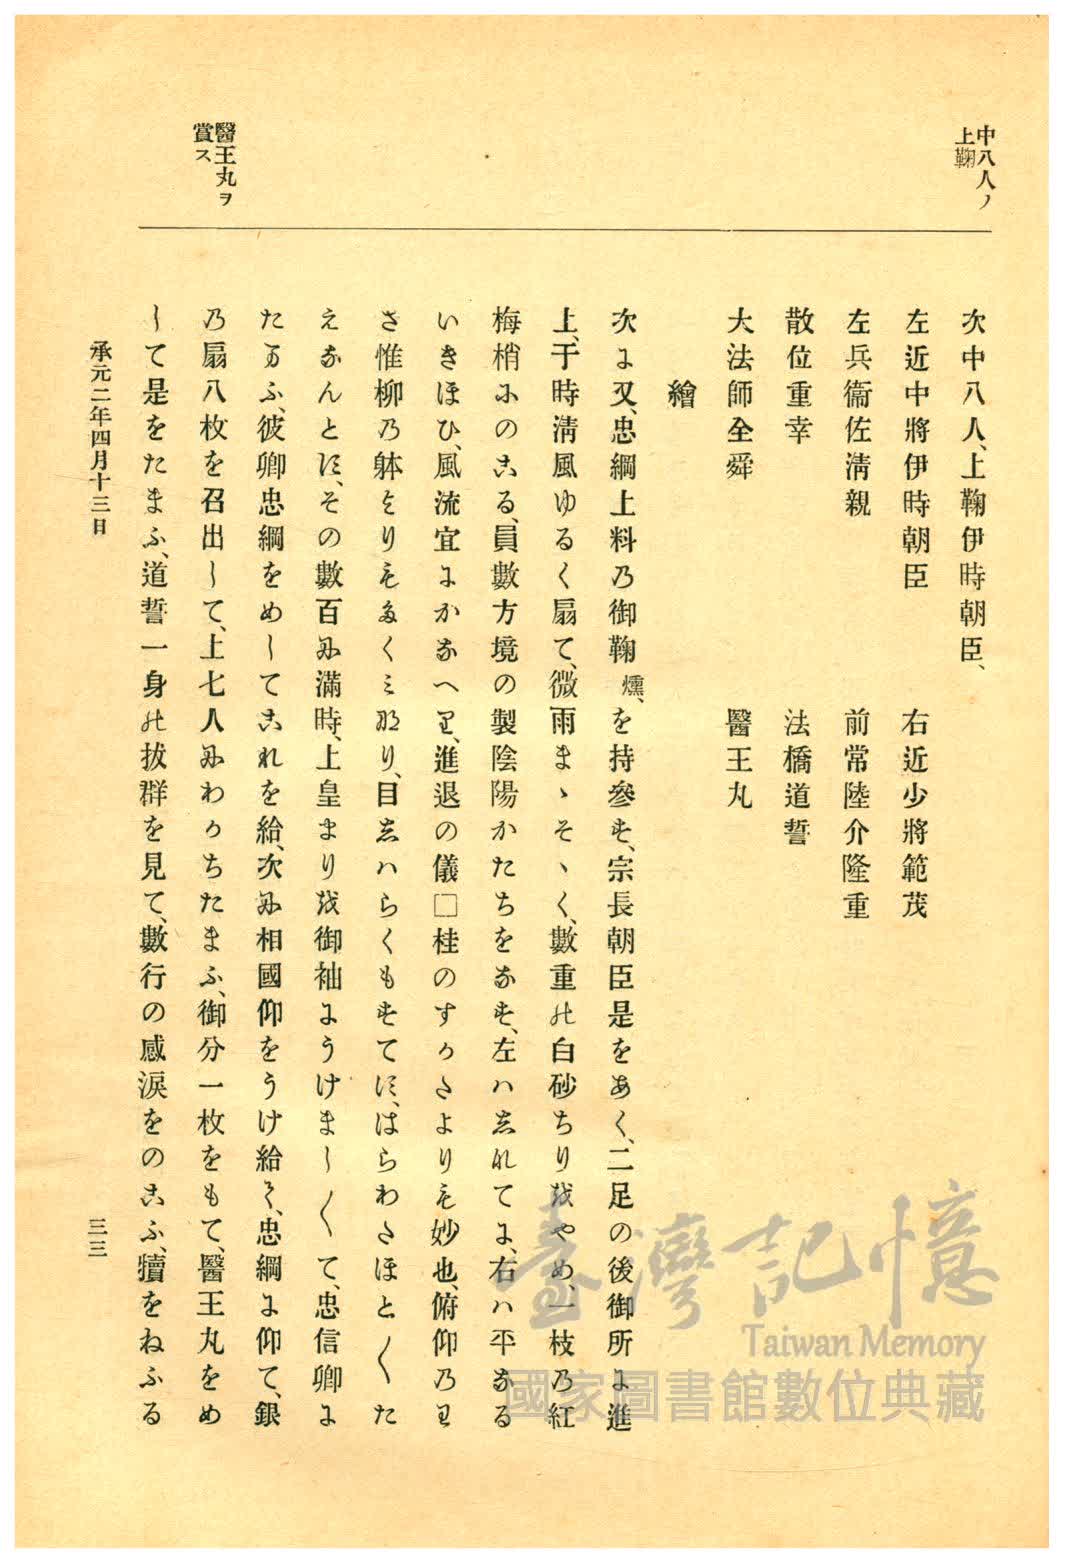 中八人ノ
上鞠
次中八人、上鞠伊時朝臣、
左近中將伊時朝臣　右近少將範茂
左兵衞佐淸親　前常陸介隆重
散位重幸　法橋道誓
大法師全舜　醫王丸
繪
次に又、忠綱上料乃御鞠燻、を持參す、宗長朝臣是をあく、二足の後御所に進
上、于時淸風ゆるく扇て、微雨まゝそゝく、數重の白砂ちりをやめ、一枝乃紅
梅梢にのこる、員數方境の製陰陽かたちをなす、左ハしれてに、右ハ平なる
いきほひ、風流宜にかなへり、進退の儀□桂のすかたよりも妙也、俯仰乃わ
さ惟柳乃躰をりもたくミなり、目しハらくもすてに、はらわたほと〱た
えなんとに、その數百に滿時、上皇まりを御袖にうけまし〱て、忠信卿に
たまふ、彼卿忠綱をめしてこれを給、次に相國仰をうけ給て、忠綱に仰て、銀
乃扇八枚を召出して、上七人にわかちたまふ、御分一枚をもて、醫王丸をめ
して是をたまふ、道誓一身の拔群を見て、數行の感淚をのこふ、犢をねふる
醫王丸ヲ
賞ス
承元二年四月十三日
三三
臺灣記憶
Taiwan Memory
國家圖書館數位典藏